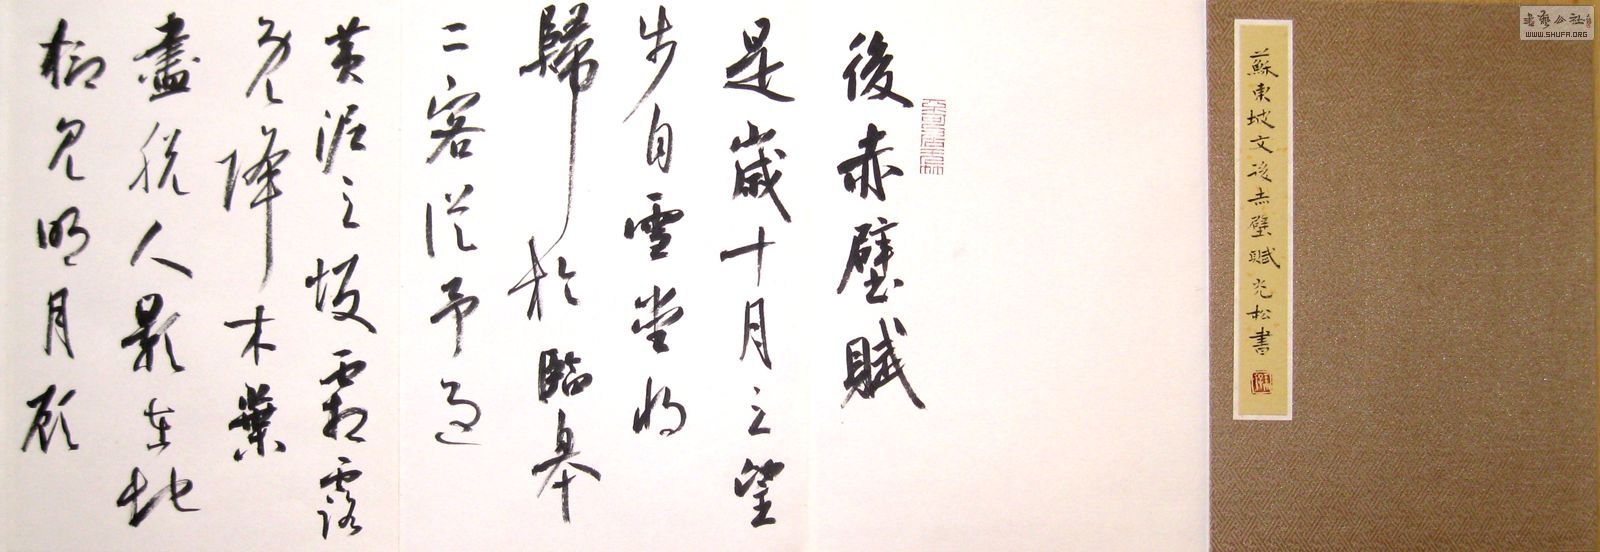 書藝公社
WWW.SHUFA.ORG
蘇東坡文後赤壁賦光松書
後赤壁賦
是歲十月之望
步自雪堂將
歸於臨皋
二客從予過
黃泥之坂霜露
既降木葉
盡脫人影在地
仰見明月顧